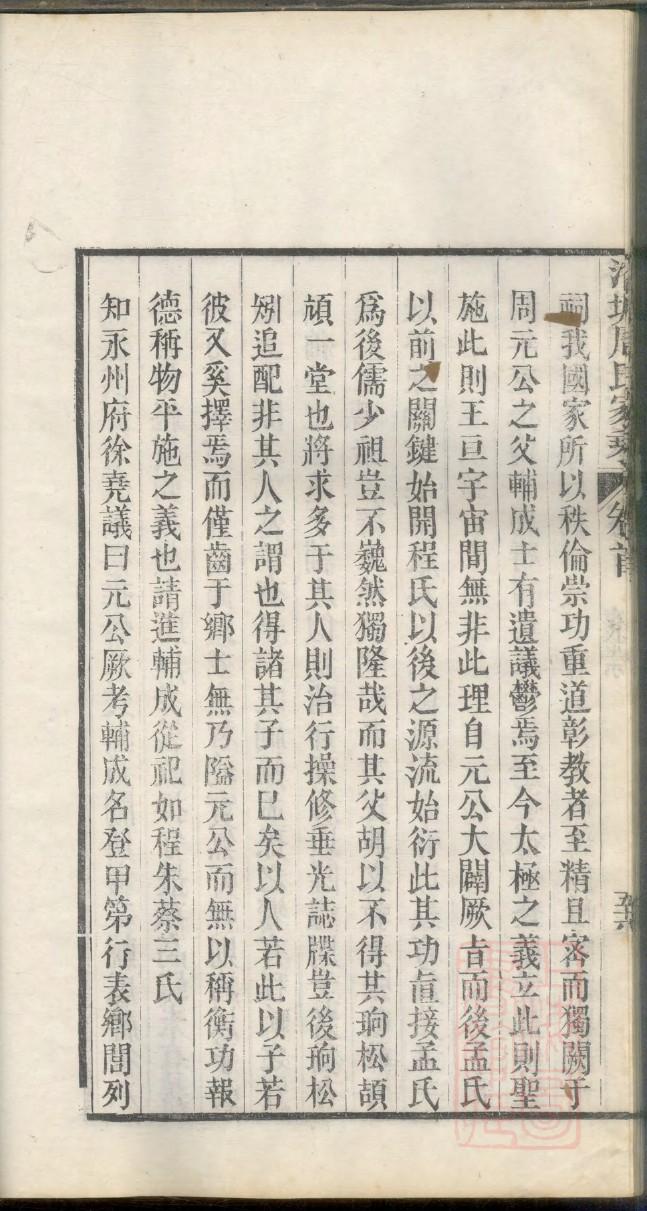 周氏家乘 卷首
祠我國家所以秩倫崇功重道彰教者至精且密而獨闕于
周元公之父輔成士有遺議鬱焉至今太極之義立此則聖
施此則王亘宇宙間無非此理自元公大闢厥旨而後孟氏
以前之關鍵始開程氏以後之源流始衍此其功直接孟氏
爲後儒少祖豈不巍然獨隆哉而其父胡以不得其珦松頡
頏一堂也將求多于其人則治行操修垂光誌牒豈後珦松
矧追配非其人之謂也得諸其子而已矣以人若此以子若
彼又奚擇焉而僅齒于鄉士無乃隘元公而無以稱衡功報
德稱物平施之義也請進輔成從祀如程朱蔡三氏
知永州府徐堯議曰元公厥考輔成名登甲第行表鄉閭列